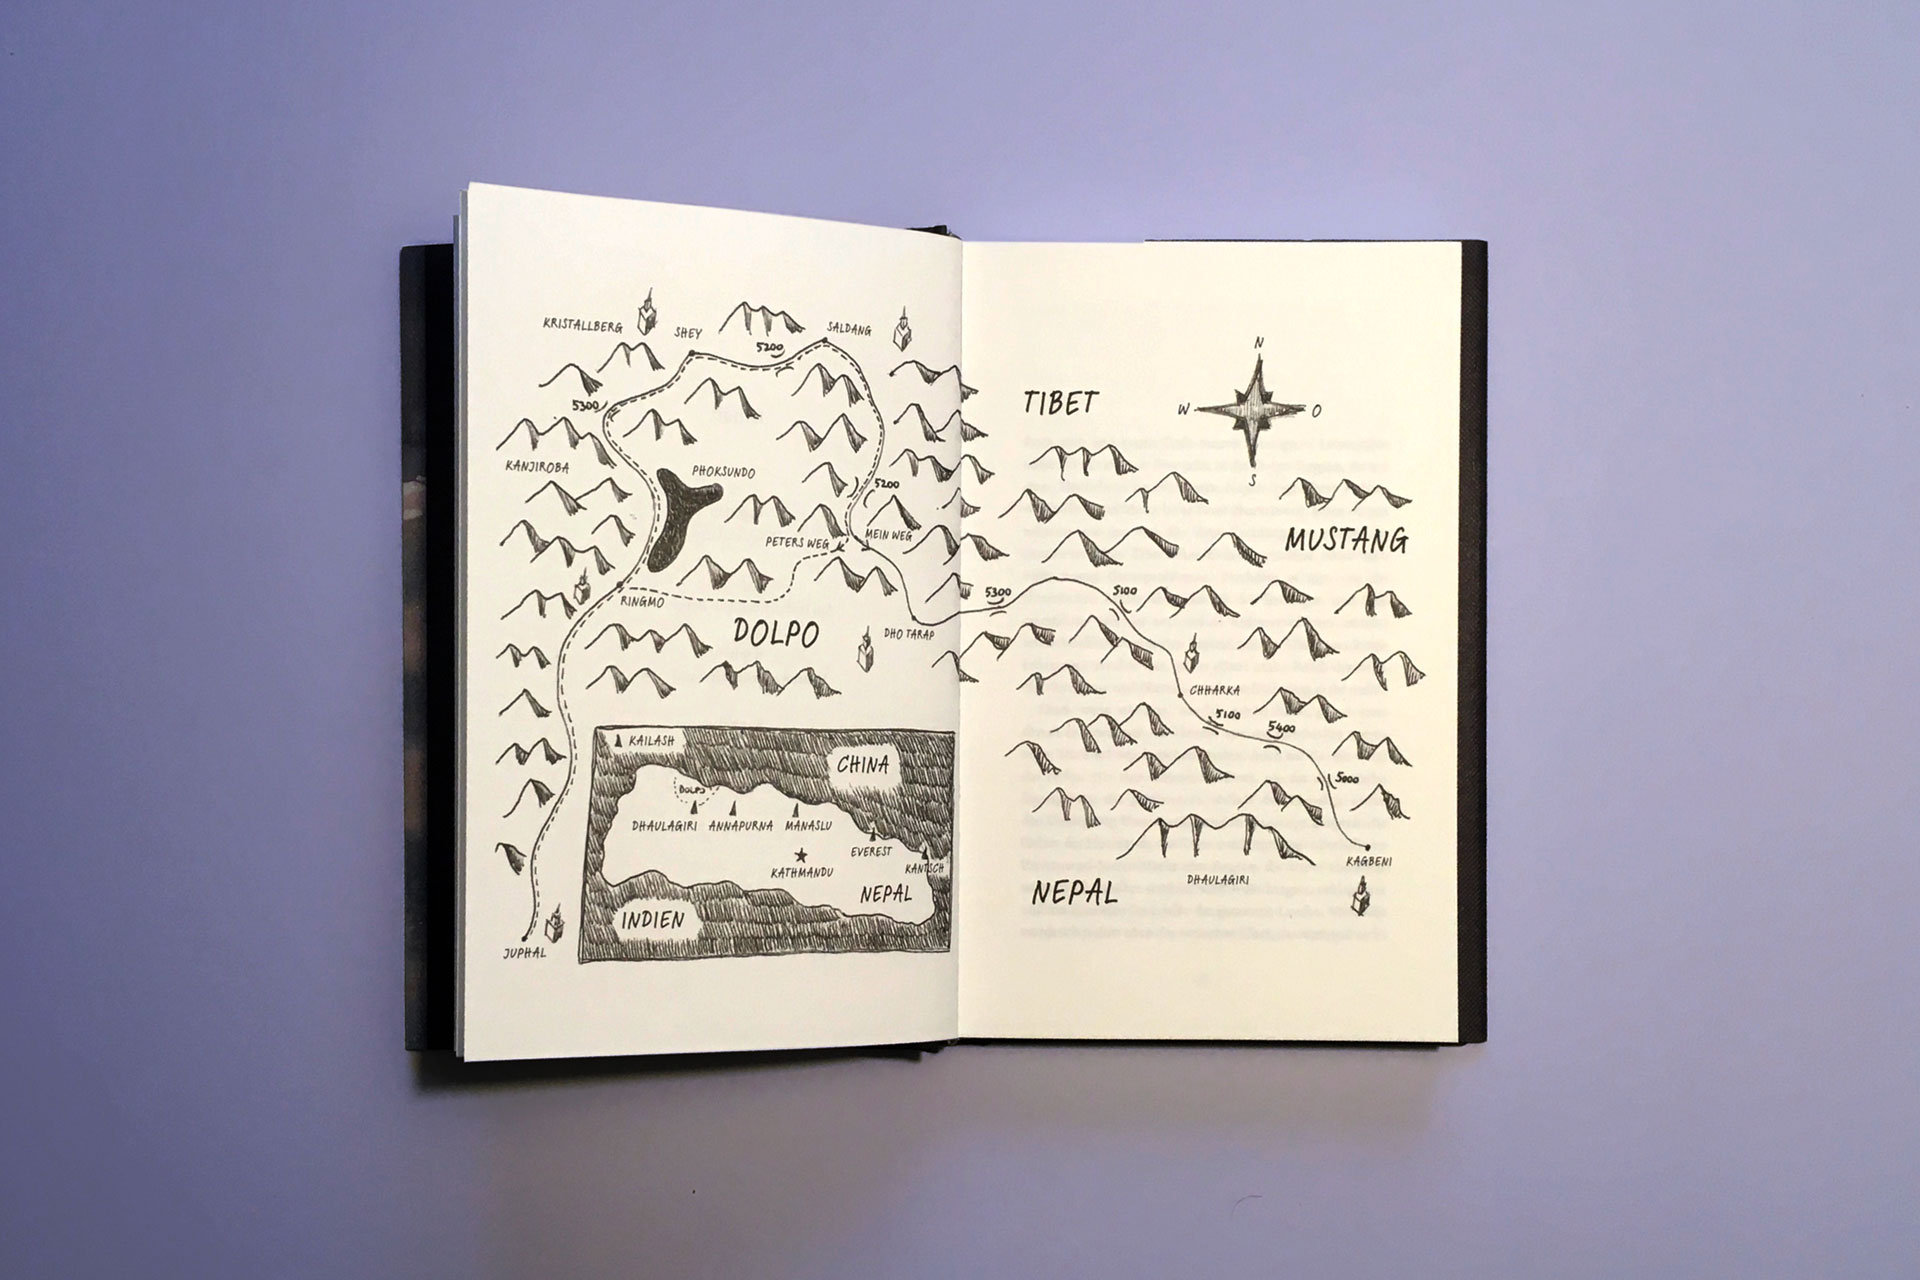 KRISTALLBERG
SHEY
5200
SALDANG
5300
KANJIROBA
PHOKSUNDO
5200
PETERS WEG
MEIN WEG
RINGMO
DOLPO
DHO TARAP
KAILASH
CHINA
DOLPO
DHAULAGIRI
ANNAPURNA
MANASLU
EVEREST
KANTSCH
KATHMANDU
NEPAL
INDIEN
JUPHAL
TIBET
N
W
O
S
MUSTANG
5300
5100
CHHARKA
5100
5400
5000
KAGBENI
DHAULAGIRI
NEPAL